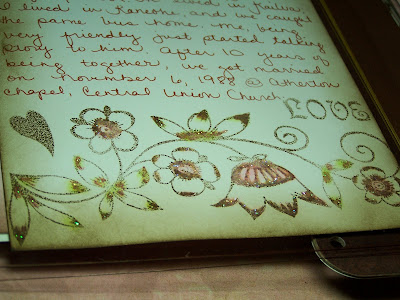 I lived in Kaneohe, and we caught
the same bus home. Me, being
very friendly just started talking
story to him. After 10 years of
being together, we got married
on November 6, 1988 @ Atherton
chapel, Central Union Church.
LOVE